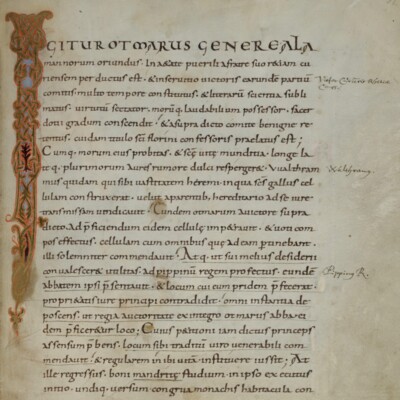 IGITUR OTMARUS GENERE ALA
mannorum oriundus. In aetate puerili a fratre suo retiam cu
riensem perductus est. & in servitio victoris earundē partiū
comitis multo tempore constitutus. & literarū scientia subli
matus. virtutū sectator. morūq. laudabilium possessor. sacer
dotii gradum conscendit. & a supra dicto comite benigne re
tentus. cuidam titulo sc̄i florini confessoris praelatus est;
Cumq. morum eius probitas. & sc̄ę vitę munditia. longe la
teq. plurimorum aures rumore dulci respergeret. Vualthram
mus quidam qui sibi vastitatem heremi. in qua sc̄s gallus cel
lulam construxerat. velut aparentib. hereditario ad se iure
transmissam vindicavit. Eundem otmarum a victore supra
dicto. ad p̄ficiendum eidem cellulę impetravit. & voti com
pos effectus. cellulam cum omnibus quę ad eam ptinebant.
illi solemniter commendavit. Atq. ut sui melius desiderii
convalesceret utilitas. ad pippinū regem profectus. eundē
abbatem ipsi p̄sentavit. & locum cui eum pridem p̄fecerat.
proprietatis iure principi contradidit. omni instantia de
poscens. ut regia auctoritate ex integro otmarus abba ei
dem p̄ficeretur loco; Cuius petitioni iam dictus princeps
assensum p̄bens. locum sibi traditū viro venerabili com
mendavit. & regularem inibi vitā instituere iussit; At
ille regressus. boni mandati studium in ipso executus
initio. undiq. versum congrua monachis habitacula con
Pippinq R.